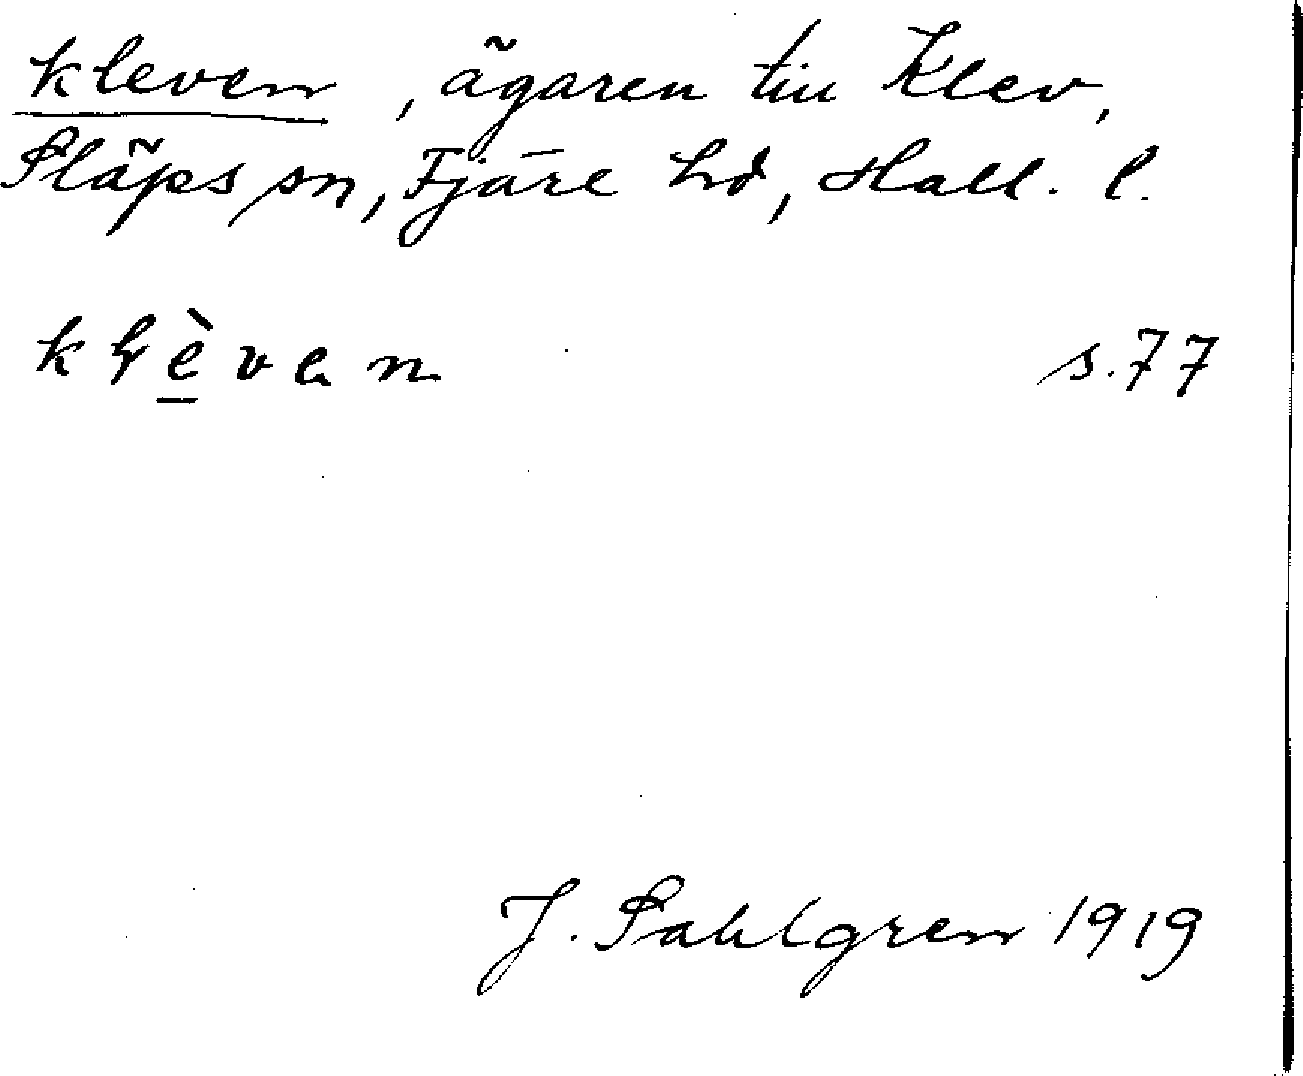 kleven, ägaren till Klev,
Släps sn, Fjäre hd, Hall. l.
klèven s.77
J. Sahlgren 1919